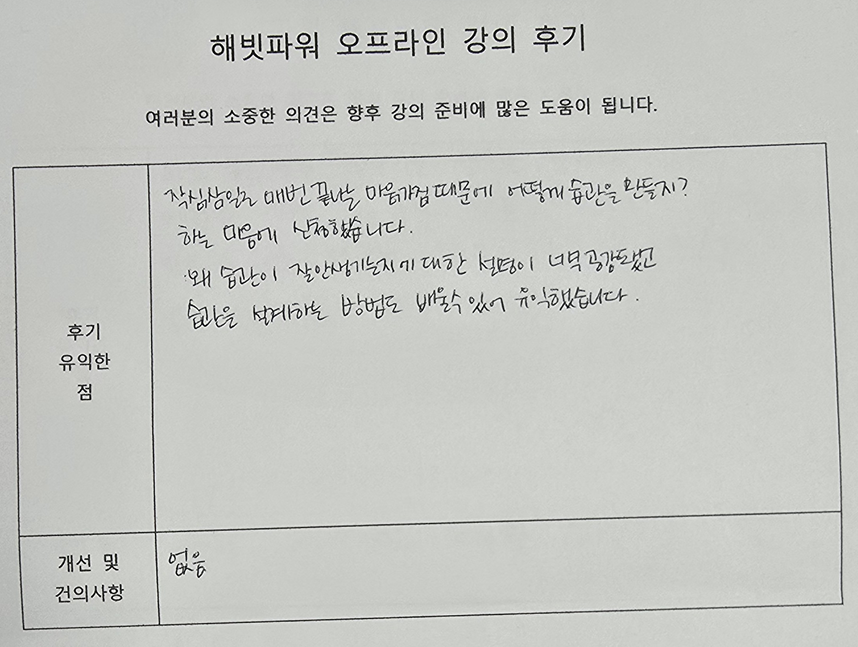 해빗파워 오프라인 강의 후기
여러분의 소중한 의견은 향후 강의 준비에 많은 도움이 됩니다.
작심삼일로 매번 끝나는 마음가짐 때문에 어떻게 습관을 만들지?
하는 마음에 신청했습니다.
왜 습관이 잘안생기는지에 대한 설명이 너무 공감되었고
습관을 설계하는 방법도 배울수 있어 유익했습니다.
후기
유익한
점
개선 및
건의사항
없음